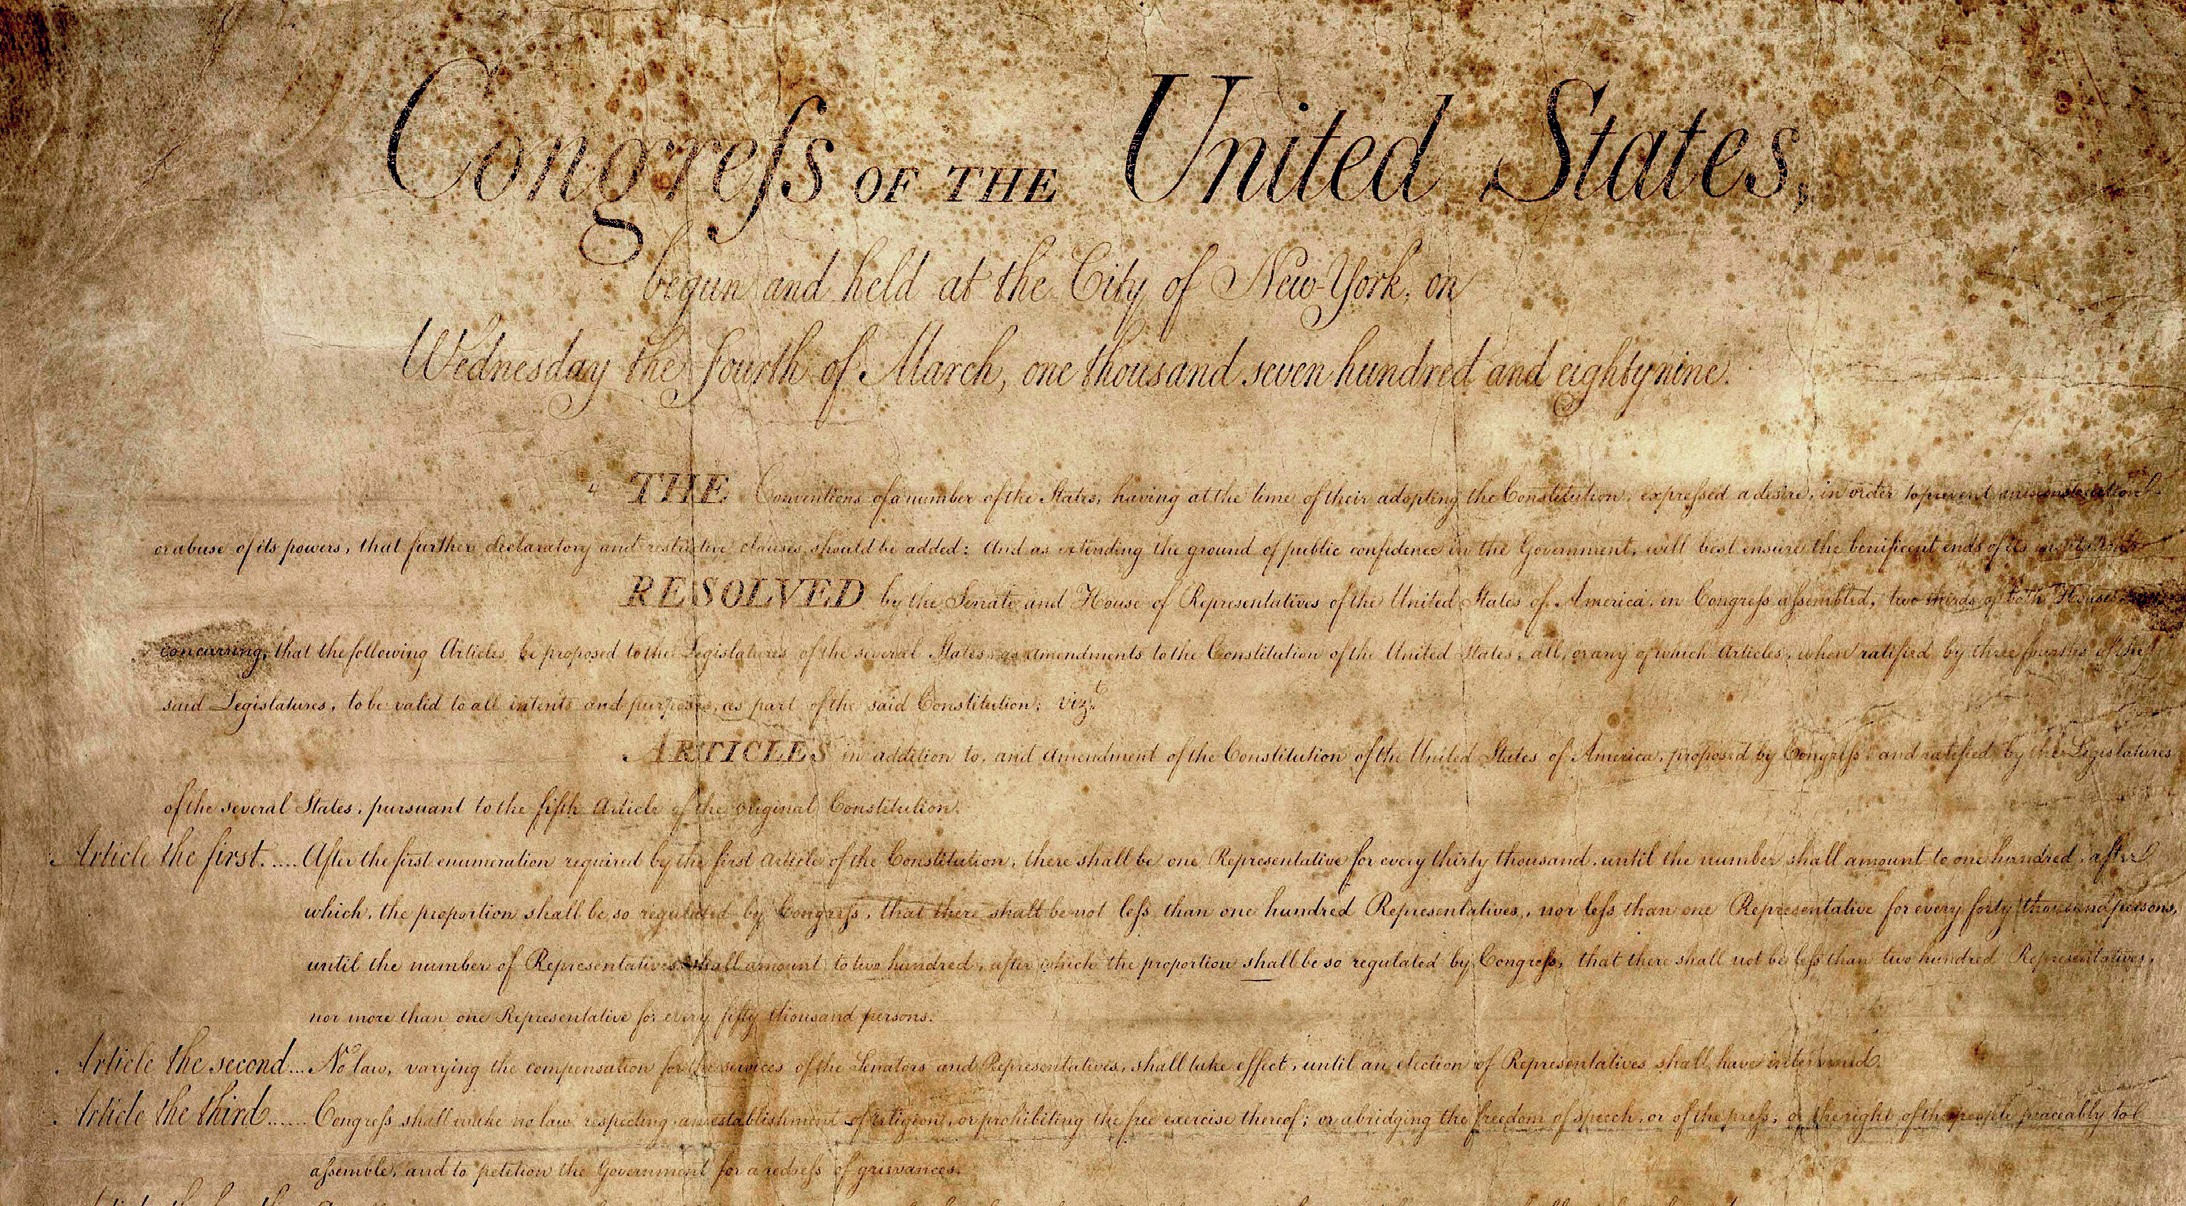 Congreſs OF THE United States,
begun and held at the City of New-York, on
Wednesday the Fourth of March, one thousand seven hundred and eighty nine.
THE Conventions of a number of the States, having at the time of their adopting the Constitution, expreſsed a desire, in order to prevent misconstruction
or abuse of its powers, that further declaratory and restrictive clauses should be added: And as extending the ground of public confidence in the Government, will best ensure the benificent ends of its institution
RESOLVED by the Senate and House of Representatives of the United States of America, in Congreſs aſsembled, two thirds of both Houses
concurring, that the following Articles be proposed to the Legislatures of the several States, as amendments to the Constitution of the United States, all, or any of which Articles, when ratified by three fourths of the
said Legislatures, to be valid to all intents and purposes, as part of the said Constitution; vizt.
ARTICLES in addition to, and Amendment of the Constitution of the United States of America, proposed by Congreſs, and ratified by the Legislatures
of the several States, pursuant to the fifth Article of the original Constitution.
Article the first..... After the first enumeration required by the first Article of the Constitution, there shall be one Representative for every thirty thousand, until the number shall amount to one hundred, after
which, the proportion shall be so regulated by Congreſs, that there shall be not leſs than one hundred Representatives, nor leſs than one Representative for every forty thousand persons,
until the number of Representatives shall amount to two hundred, after which the proportion shall be so regulated by Congreſs, that there shall not be leſs than two hundred Representatives,
nor more than one Representative for every fifty thousand persons.
Article the second... No law, varying the compensation for the services of the Senators and Representatives, shall take effect, until an election of Representatives shall have intervened.
Article the third...... Congreſs shall make no law respecting an establishment of religion, or prohibiting the free exercise thereof; or abridging the freedom of speech, or of the preſs, or the right of the people peaceably to
aſsemble, and to petition the Government for a redreſs of grievances.